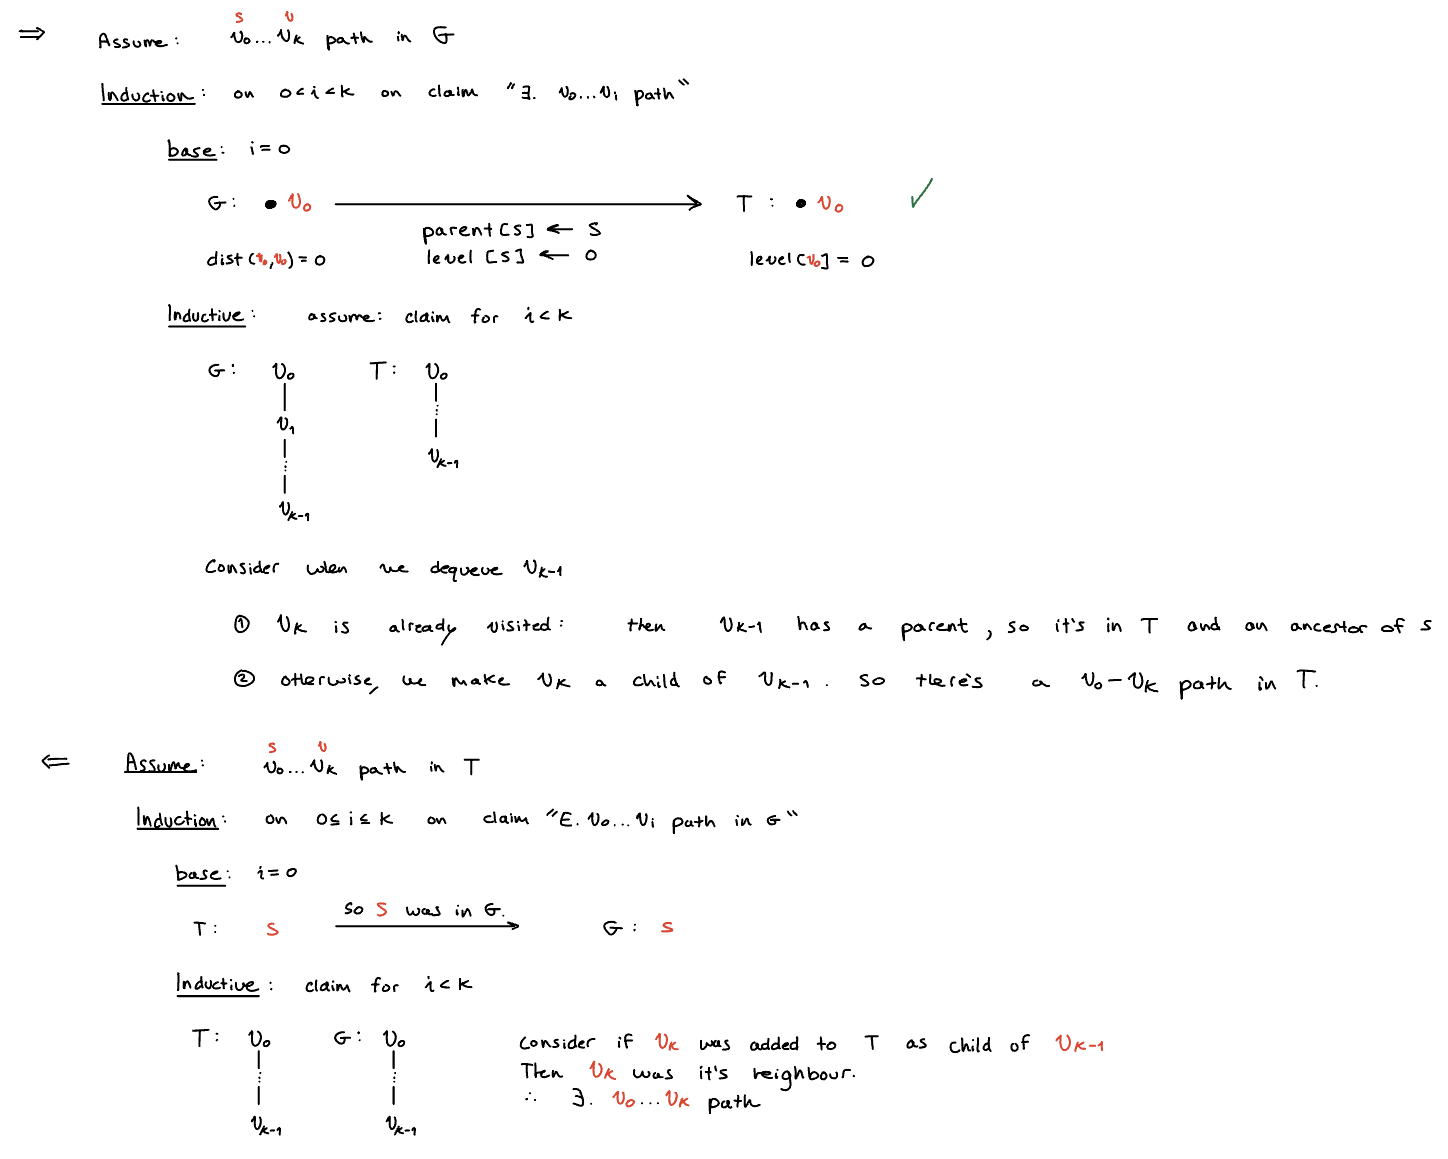 ⇒ Assume: v₀...vₖ path in G
s v
Induction: on 0<i<k on claim "∃. v₀...vᵢ path"
base: i=0
G: • v₀ → T: • v₀ ✓
parent[s] ← s
dist(v₀,v₀)=0 level[s] ← 0 level[v₀] = 0
Inductive: assume: claim for i<k
G: v₀ T: v₀
v₁
vₖ₋₁
vₖ₋₁
Consider when we dequeue vₖ₋₁
① vₖ is already visited: then vₖ₋₁ has a parent, so it's in T and an ancestor of s
② otherwise, we make vₖ a child of vₖ₋₁. so there's a v₀-vₖ path in T.
s v
⇐ Assume: v₀...vₖ path in T
Induction: on 0≤i≤k on claim "E. v₀...vᵢ path in G"
base: i=0
so s was in G.
T: s → G: s
Inductive: claim for i<k
T: v₀ G: v₀ Consider if vₖ was added to T as child of vₖ₋₁
Then vₖ was it's neighbour.
∴ ∃. v₀...vₖ path
vₖ₋₁ vₖ₋₁